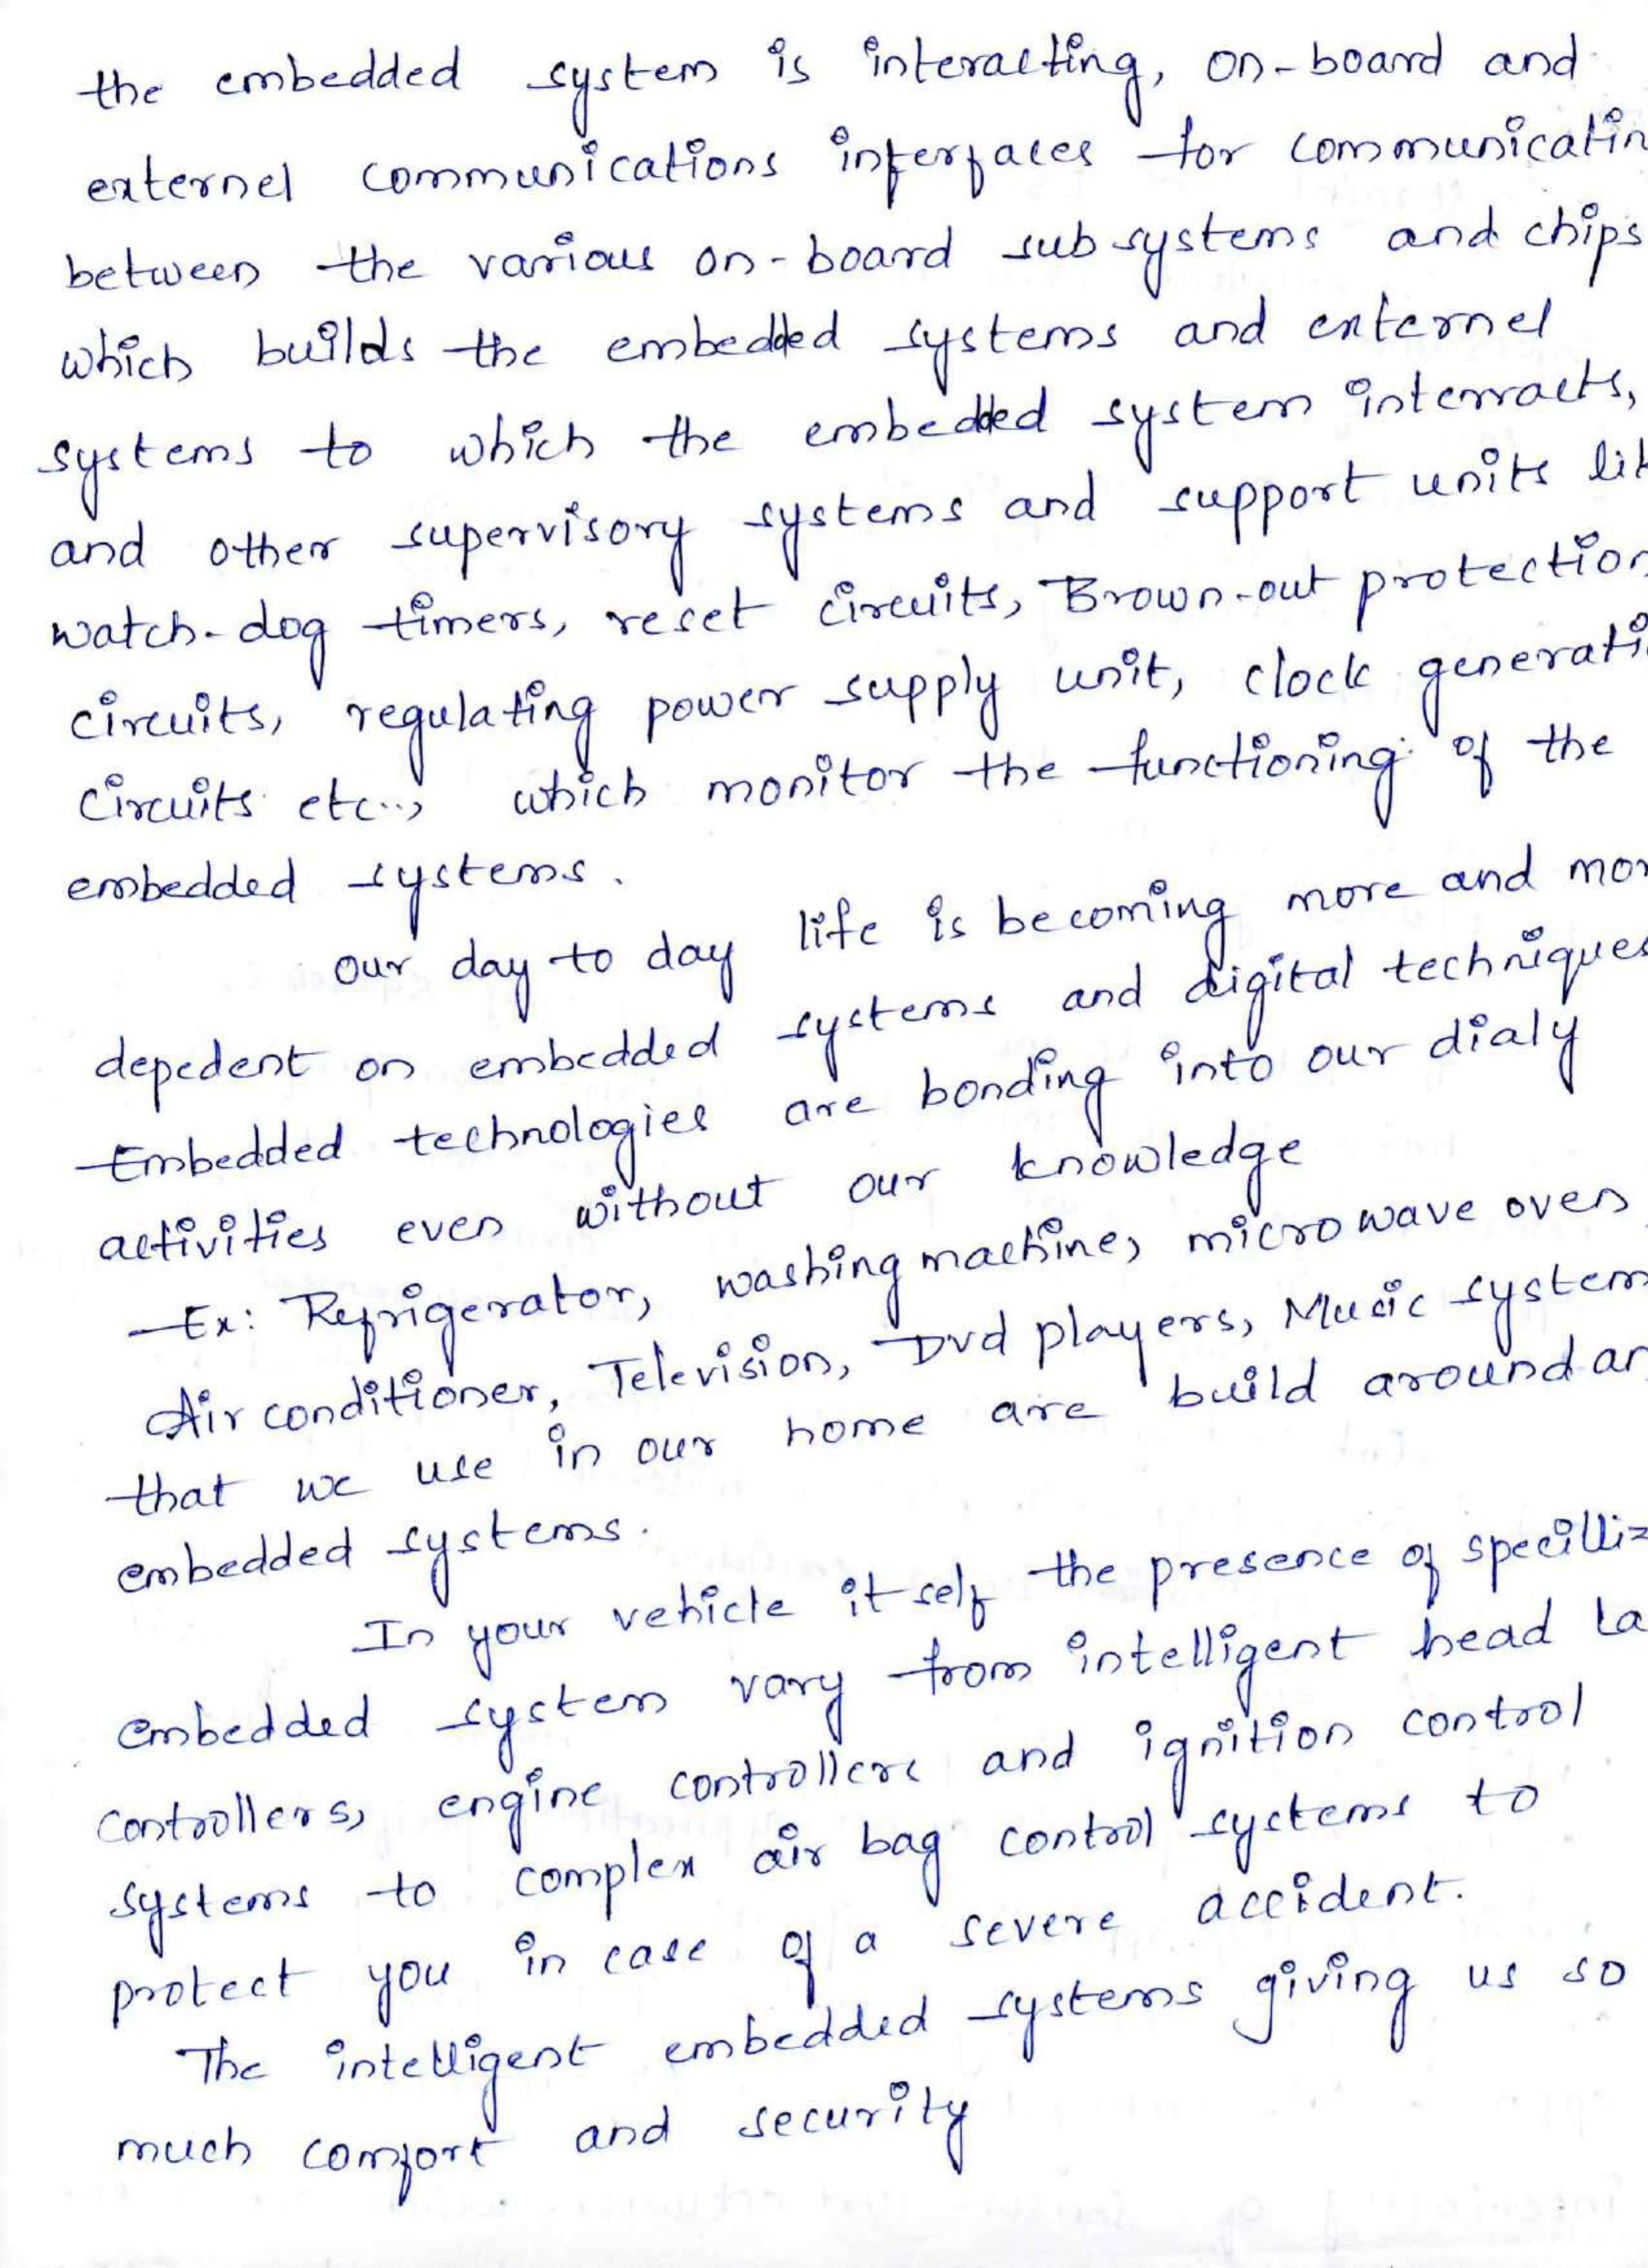 the embedded system is interacting, on-board and
externel communications interfaces for communicatin
between the various on-board subsystems and chips
which builds the embedded systems and externel
systems to which the embedded system interracts,
and other supervisory systems and support units lik
watch-dog timers, reset circuits, Brown-out protection
circuits, regulating power supply unit, clock generati
circuits etc.., which monitor the functioning of the
embedded systems.
our day to day life is becoming more and mor
depedent on embedded systems and digital techniques
Embedded technologies are bonding into our dialy
activities even without our knowledge
Ex: Refrigerator, washing machine, microwave oven
Air conditioner, Television, Dvd players, Music system
that we use in our home are build around an
embedded systems.
In your vehicle it self the presence of specilliz
embedded system vary from intelligent head la
controllers, engine controllers and ignition control
systems to complex air bag control systems to
protect you in case of a severe accident.
The intelligent embedded systems giving us so
much comfort and security